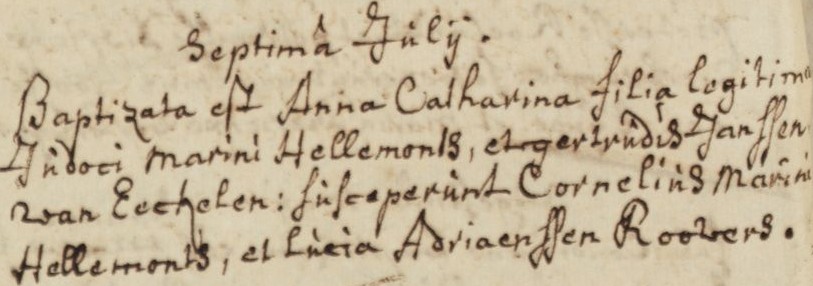 Septima Julij.
Baptizata est Anna Catharina filia legitima
Judoci Marini Hellemonts, et gertrudis Janssen
van Eeckelen: susceperunt Cornelius Marini
Hellemonts, et Lucia Adriaenssen Roovers.